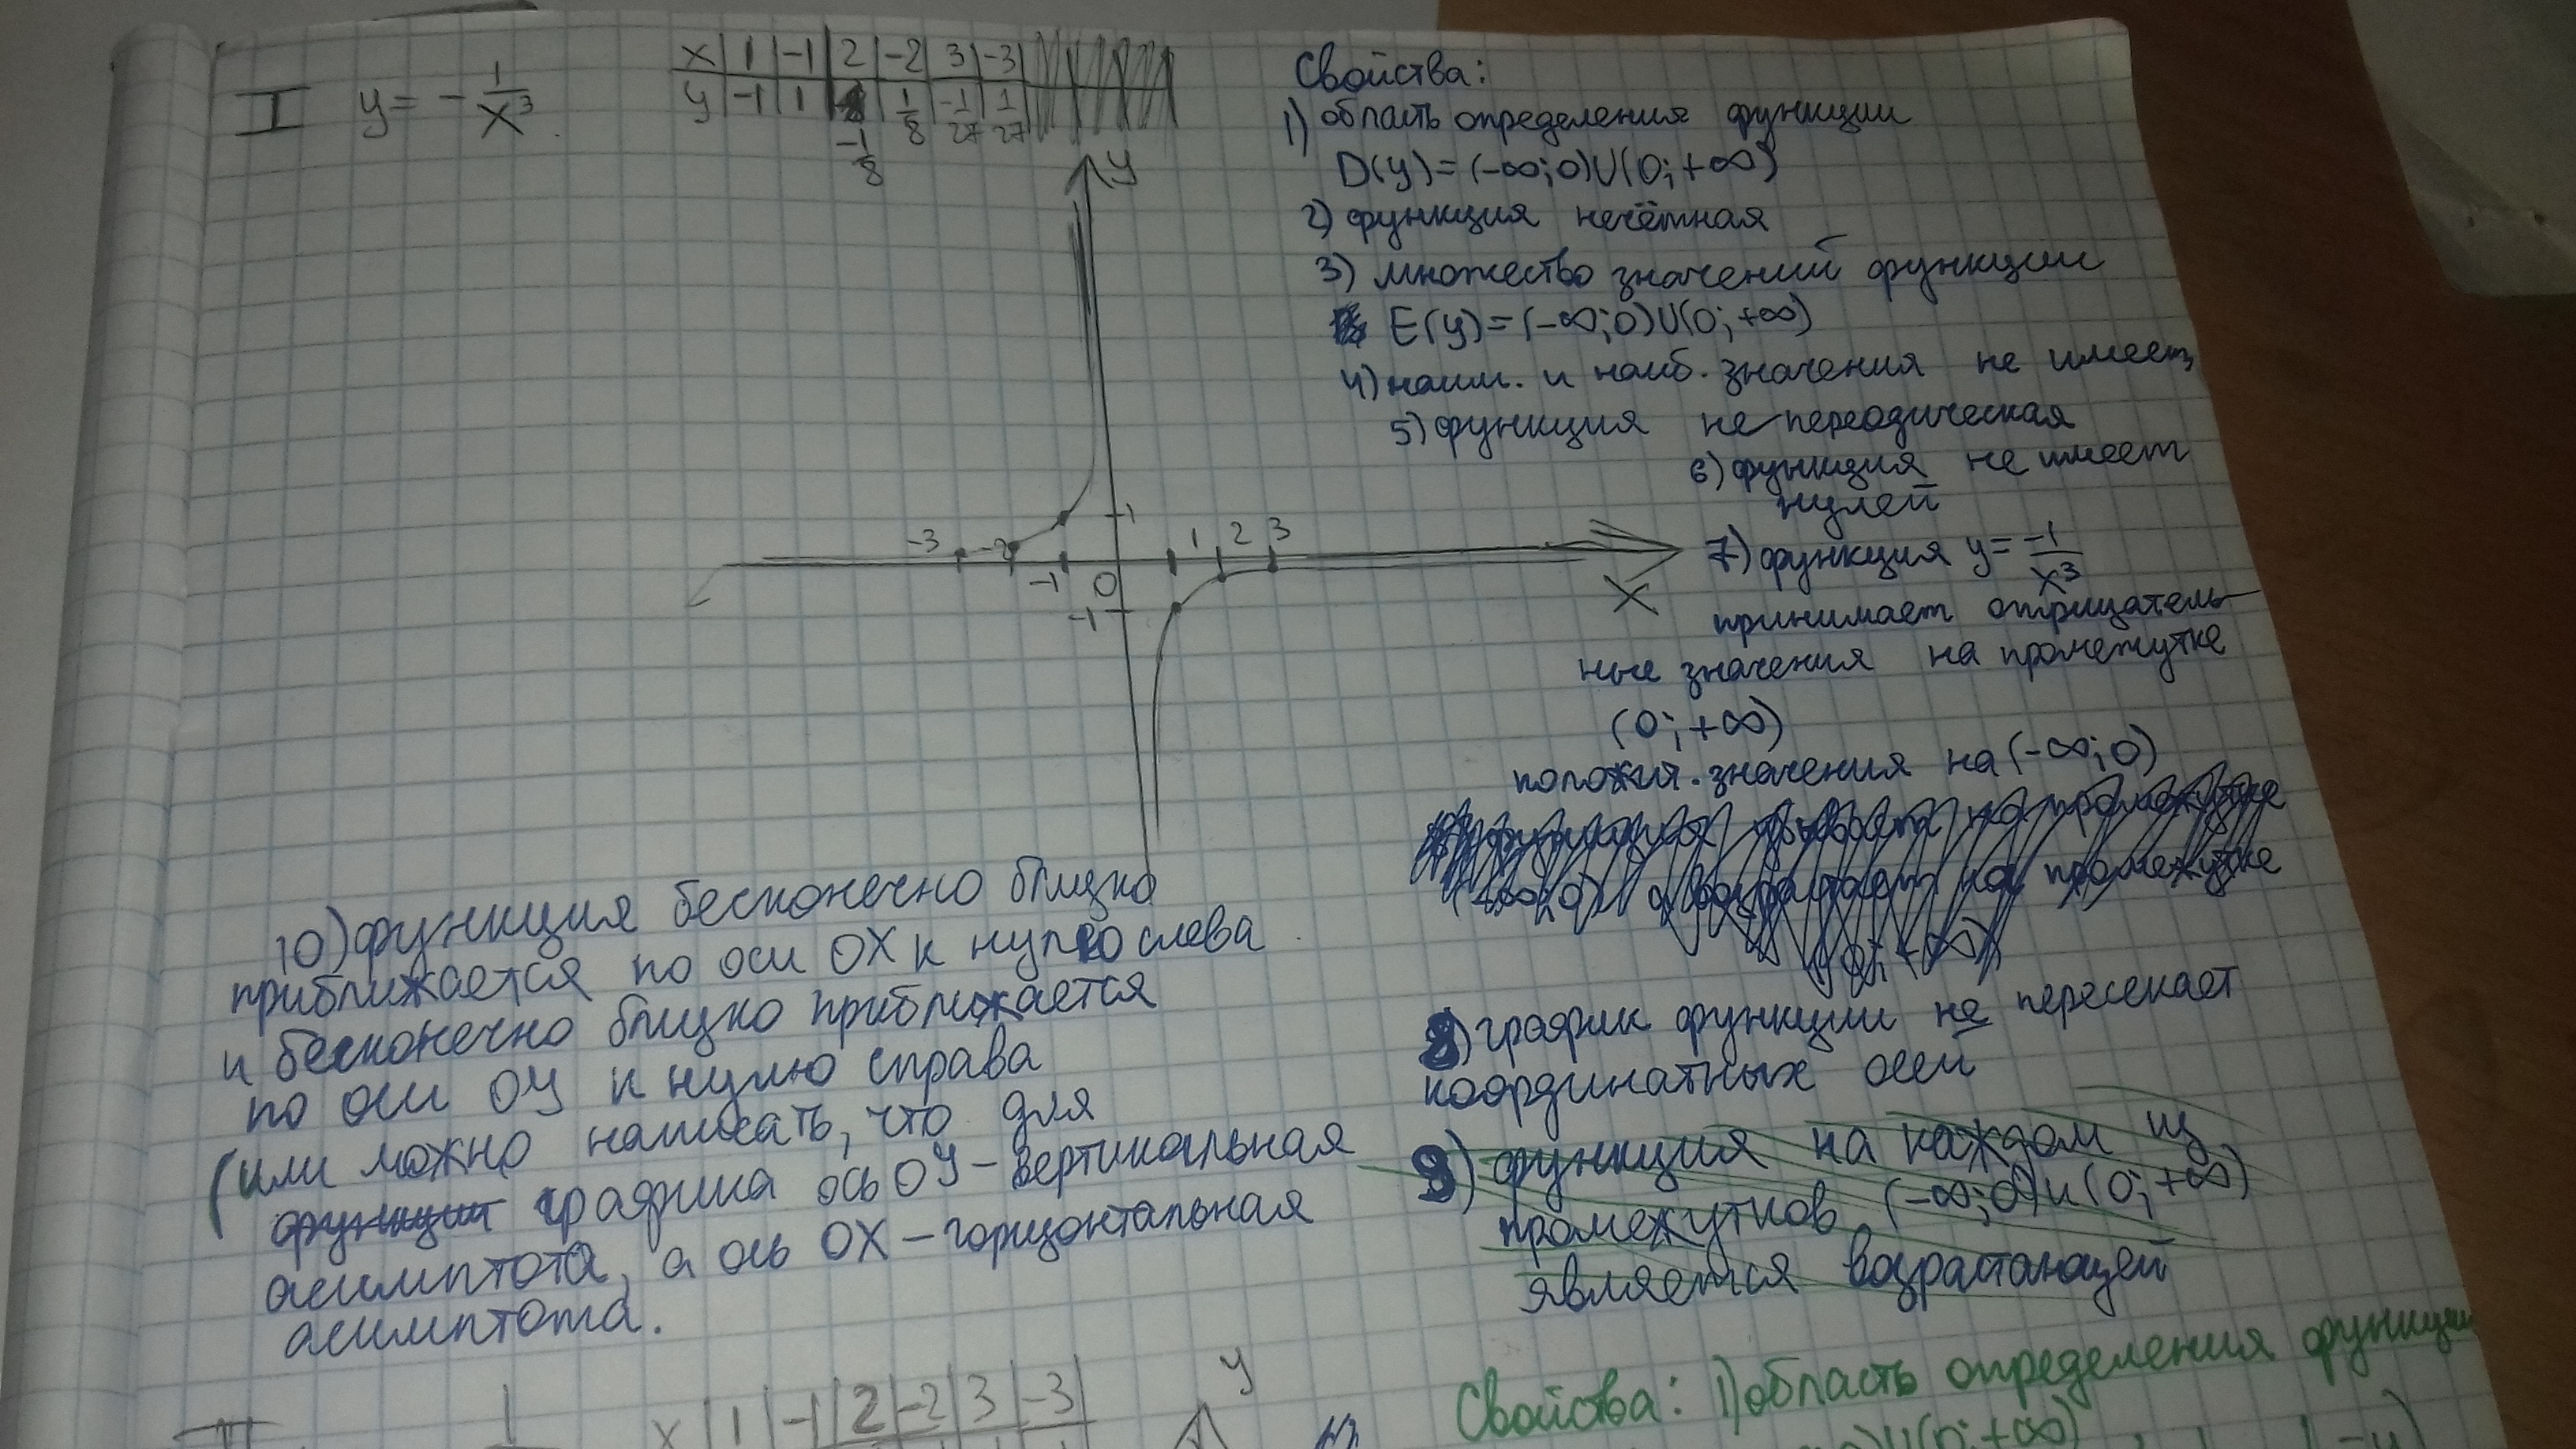 I y = - 1/x³
x | 1 | -1 | 2 | -2 | 3 | -3
y | -1 | 1 | -1/8 | 1/8 | -1/27 | 1/27
y
1
-3 -2 -1 0 1 2 3
x
-1
Свойства:
1) область определения функции
D(y)=(-∞;0)∪(0;+∞)
2) функция нечётная
3) множество значений функции
E(y)=(-∞;0)∪(0;+∞)
4) наим. и наиб. значения не имеет
5) функция не переодическая
6) функция не имеет
нулей
7) функция y= -1/x³
принимает отрицатель-
ные значения на промежутке
(0;+∞)
положит. значения на (-∞;0)
функция на промежутке
(-∞;0) а возрастает на промежутке
(0;+∞)
8) график функции не пересекает
координатных осей
9) функция на каждом из
промежутков (-∞;0) и (0;+∞)
является возрастающей
10) функция бесконечно близко
приближается по оси OX к нулю слева
и бесконечно близко приближается
по оси OY к нулю справа
(или можно написать, что для
функции графика ось OY – вертикальная
асимптота, а ось OX – горизонтальная
асимптота.
Свойства: 1) область определения функции
∪(0;+∞)
II 1
x | 1 | -1 | 2 | -2 | 3 | -3
y